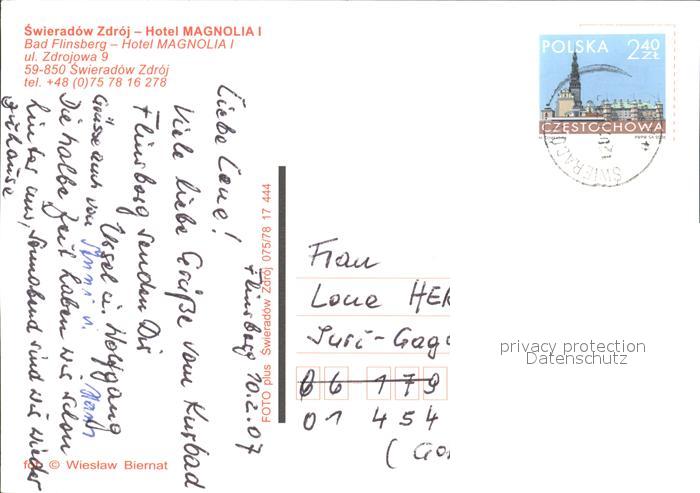 Świeradów Zdrój – Hotel MAGNOLIA I
Bad Flinsberg – Hotel MAGNOLIA I
ul. Zdrojowa 9
59-850 Świeradów Zdrój
tel. +48 (0)75 78 16 278
POLSKA 2 40 ZŁ
CZĘSTOCHOWA
ŚWIERADÓ
Flinsberg 10.2.07
Liebe Lona!
Viele liebe Grüße vom Kurbad
Flinsberg senden Dir
Ursel u. Wolfgang
Grüsse auch von
Die halbe Zeit haben wir schon
hinter uns, Sonnabend sind wir wieder
zuhause
FOTO plus Świeradów Zdrój 075/78 17 444
Frau
Lona HER
Juri-Gaga
66 179
01 454
(
fot. © Wiesław Biernat
privacy protection
Datenschutz